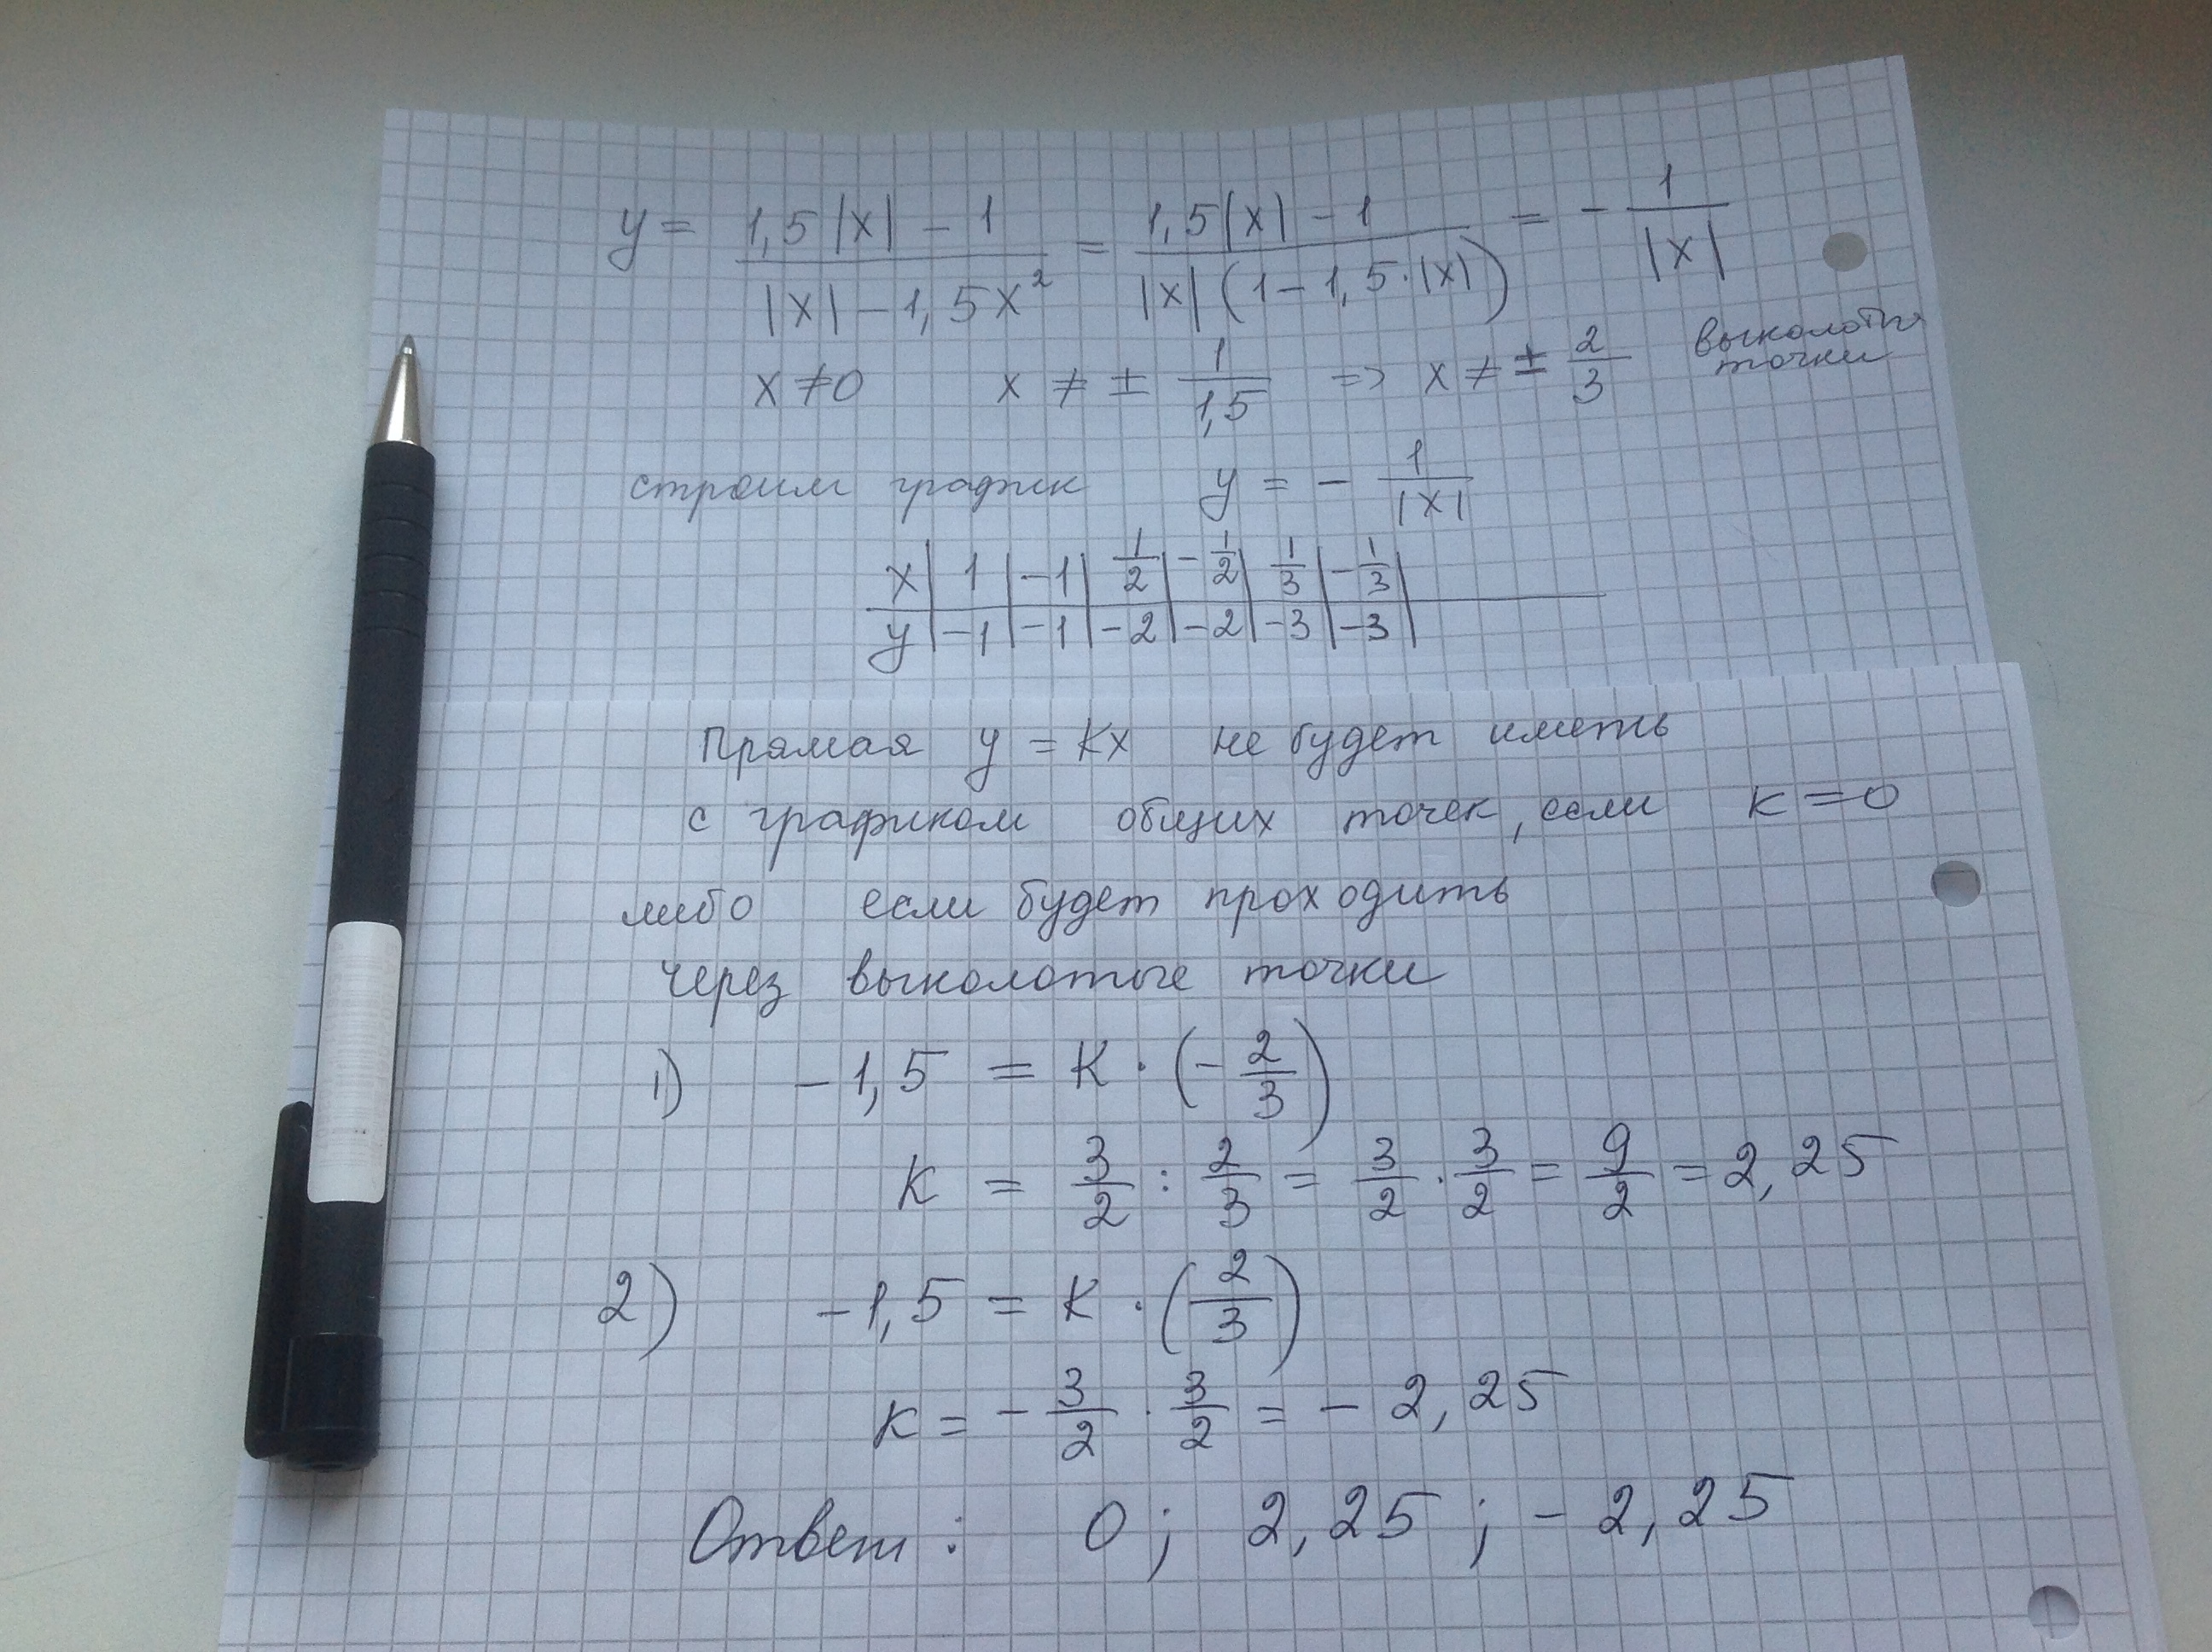 y = (1,5|x| - 1)/(|x| - 1,5x²) = (1,5|x| - 1)/(|x|(1 - 1,5·|x|)) = - 1/|x|
x ≠ 0 x ≠ ± 1/1,5 => x ≠ ± 2/3 выколотые точки
строим график y = - 1/|x|
x | 1 | -1 | 1/2 | -1/2 | 1/3 | -1/3 |
y | -1 | -1 | -2 | -2 | -3 | -3 |
Прямая y = kx не будет иметь
с графиком общих точек, если k = 0
либо если будет проходить
через выколотые точки
1) -1,5 = k · (-2/3)
k = 3/2 : 2/3 = 3/2 · 3/2 = 9/2 = 2,25
2) -1,5 = k · (2/3)
k = - 3/2 · 3/2 = - 2,25
Ответ: 0; 2,25; -2,25